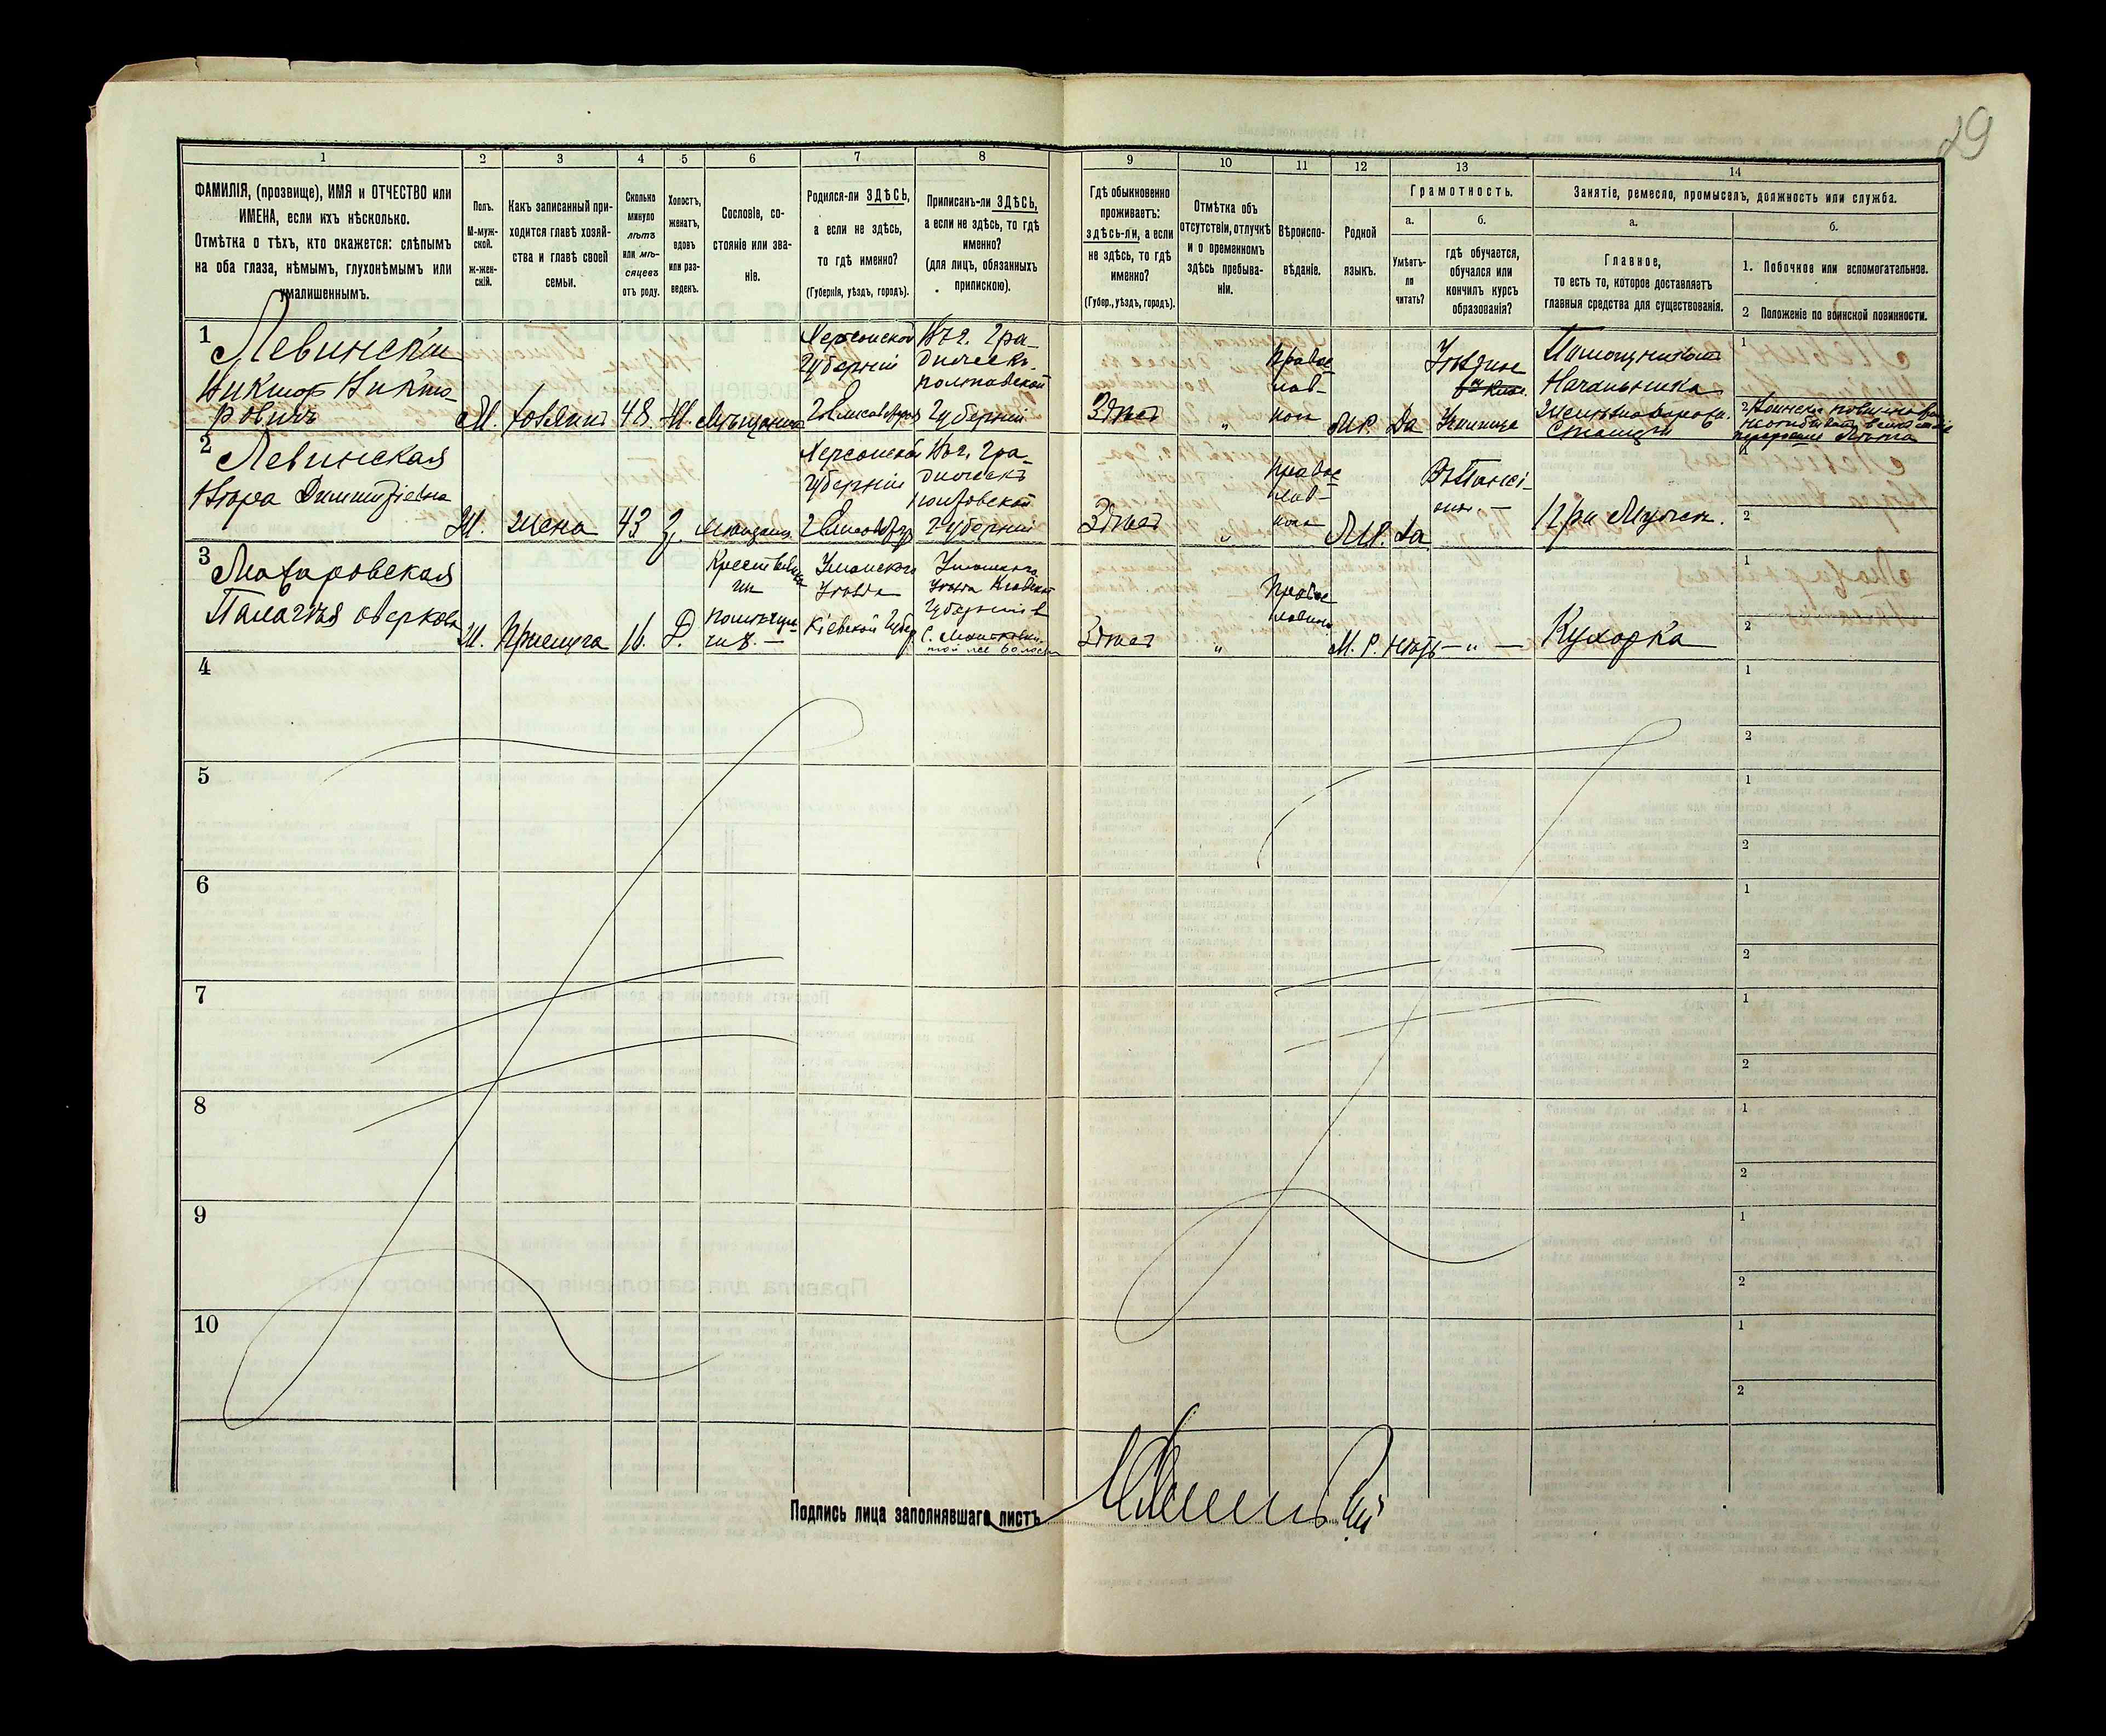 29
1
2
3
4
5
6
7
8
9
10
11
12
13
14
ФАМИЛІЯ, (прозвище), ИМЯ и ОТЧЕСТВО или
ИМЕНА, если ихъ нѣсколько.
Отмѣтка о тѣхъ, кто окажется: слѣпымъ
на оба глаза, нѣмымъ, глухонѣмымъ или
умалишеннымъ.
Полъ.
М-муж-
ской.
ж-жен-
скій.
Какъ записанный при-
ходится главѣ хозяй-
ства и главѣ своей
семьи.
Сколько
минуло
лѣтъ
или мѣ-
сяцевъ
отъ роду.
Холостъ,
женатъ,
вдовъ
или раз-
веденъ.
Сословіе, со-
стояніе или зва-
ніе.
Родился-ли ЗДѢСЬ,
а если не здѣсь,
то гдѣ именно?
(Губернія, уѣздъ, городъ).
Приписанъ-ли ЗДѢСЬ,
а если не здѣсь, то гдѣ
именно?
(для лицъ, обязанныхъ
припискою).
Гдѣ обыкновенно
проживаетъ:
здѣсь-ли, а если
не здѣсь, то гдѣ
именно?
(Губер., уѣздъ, городъ).
Отмѣтка объ
отсутствіи, отлучкѣ
и о временномъ
здѣсь пребыва-
ніи.
Вѣроиспо-
вѣданіе.
Родной
языкъ.
Грамотность.
а.
Умѣетъ-
ли
читать?
б.
гдѣ обучается,
обучался или
кончилъ курсъ
образованія?
Занятіе, ремесло, промыселъ, должность или служба.
а.
Главное,
то есть то, которое доставляетъ
главныя средства для существованія.
б.
1. Побочное или вспомогательное.
2 Положеніе по воинской повинности.
1
Левинскій
Виктор Викто-
ровичъ
М.
хозяин
48
Ж.
Мѣщанин
Херсонской
Губерніи
г Елисаветград
Въ г. Гра-
дижскъ
полтавской
Губерніи
Здѣсь
"
Право
слав-
ная
М.Р.
Да
Уѣздное
Училище
Помощникомъ
Начальника
Желѣзнодорожн.
Станціи
1
2
2
Левинская
Дмитріевна
Ж.
жена
43
З.
Херсонской
Губерніи
г Елисаветград
Въ г. Гра-
дижскъ
Полтовской
Губерніи
Здѣсь
"
Право
слав-
ная
М.Р.
Да
При Мужѣ.
1
2
3
Макаровская
Палагія
Ж.
Прислуга
16.
Д.
Уманского
Уѣзда
Кіевской Губер
Уманского
Уѣзда Кіевской
Губерніи в
Здѣсь
"
Право
славная
М.Р.
Нѣтъ
— " —
Кухарка
1
2
4
1
2
5
1
2
6
1
2
7
1
2
8
1
2
9
1
2
10
1
2
Подпись лица заполнявшаго листъ